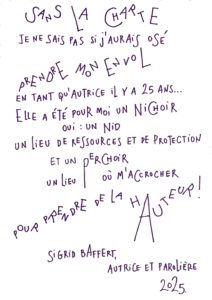 SANS LA CHARTE
JE NE SAIS PAS SI J'AURAIS OSÉ
PRENDRE MON ENVOL
EN TANT QU'AUTRICE IL Y A 25 ANS...
ELLE A ÉTÉ POUR MOI UN NICHOIR
OUI : UN NID
UN LIEU DE RESSOURCES ET DE PROTECTION
ET UN PERCHOIR
UN LIEU OÙ M'ACCROCHER
POUR PRENDRE DE LA HAUTEUR !
SIGRID BAFFERT,
AUTRICE ET PAROLIÈRE
2025.